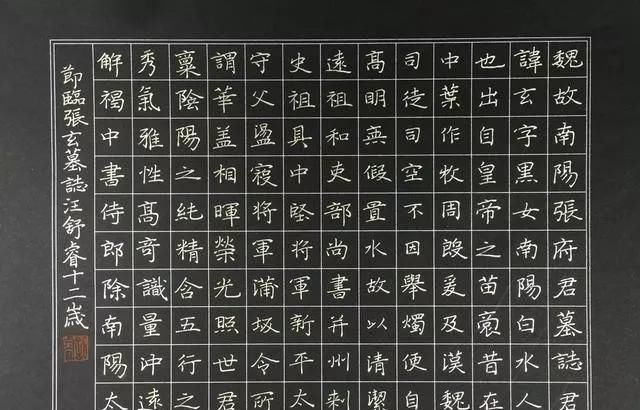 魏故南陽張府君墓誌君
諱玄字黑女南陽白水人
也出自皇帝之苗裔昔在
中葉作牧周殷爰及漢魏
司徒司空不因舉燭便自
高明無假置水故以清潔
遠祖和吏部尚書并州刺
史祖具中堅將軍新平太
守父盪寇將軍蒲坂令所
謂華盖相暉榮光照世君
稟陰陽之純精含五行之
秀氣雅性高奇識量沖遠
解褐中書侍郎除南陽太
節臨張玄墓誌汪舒睿十二歲